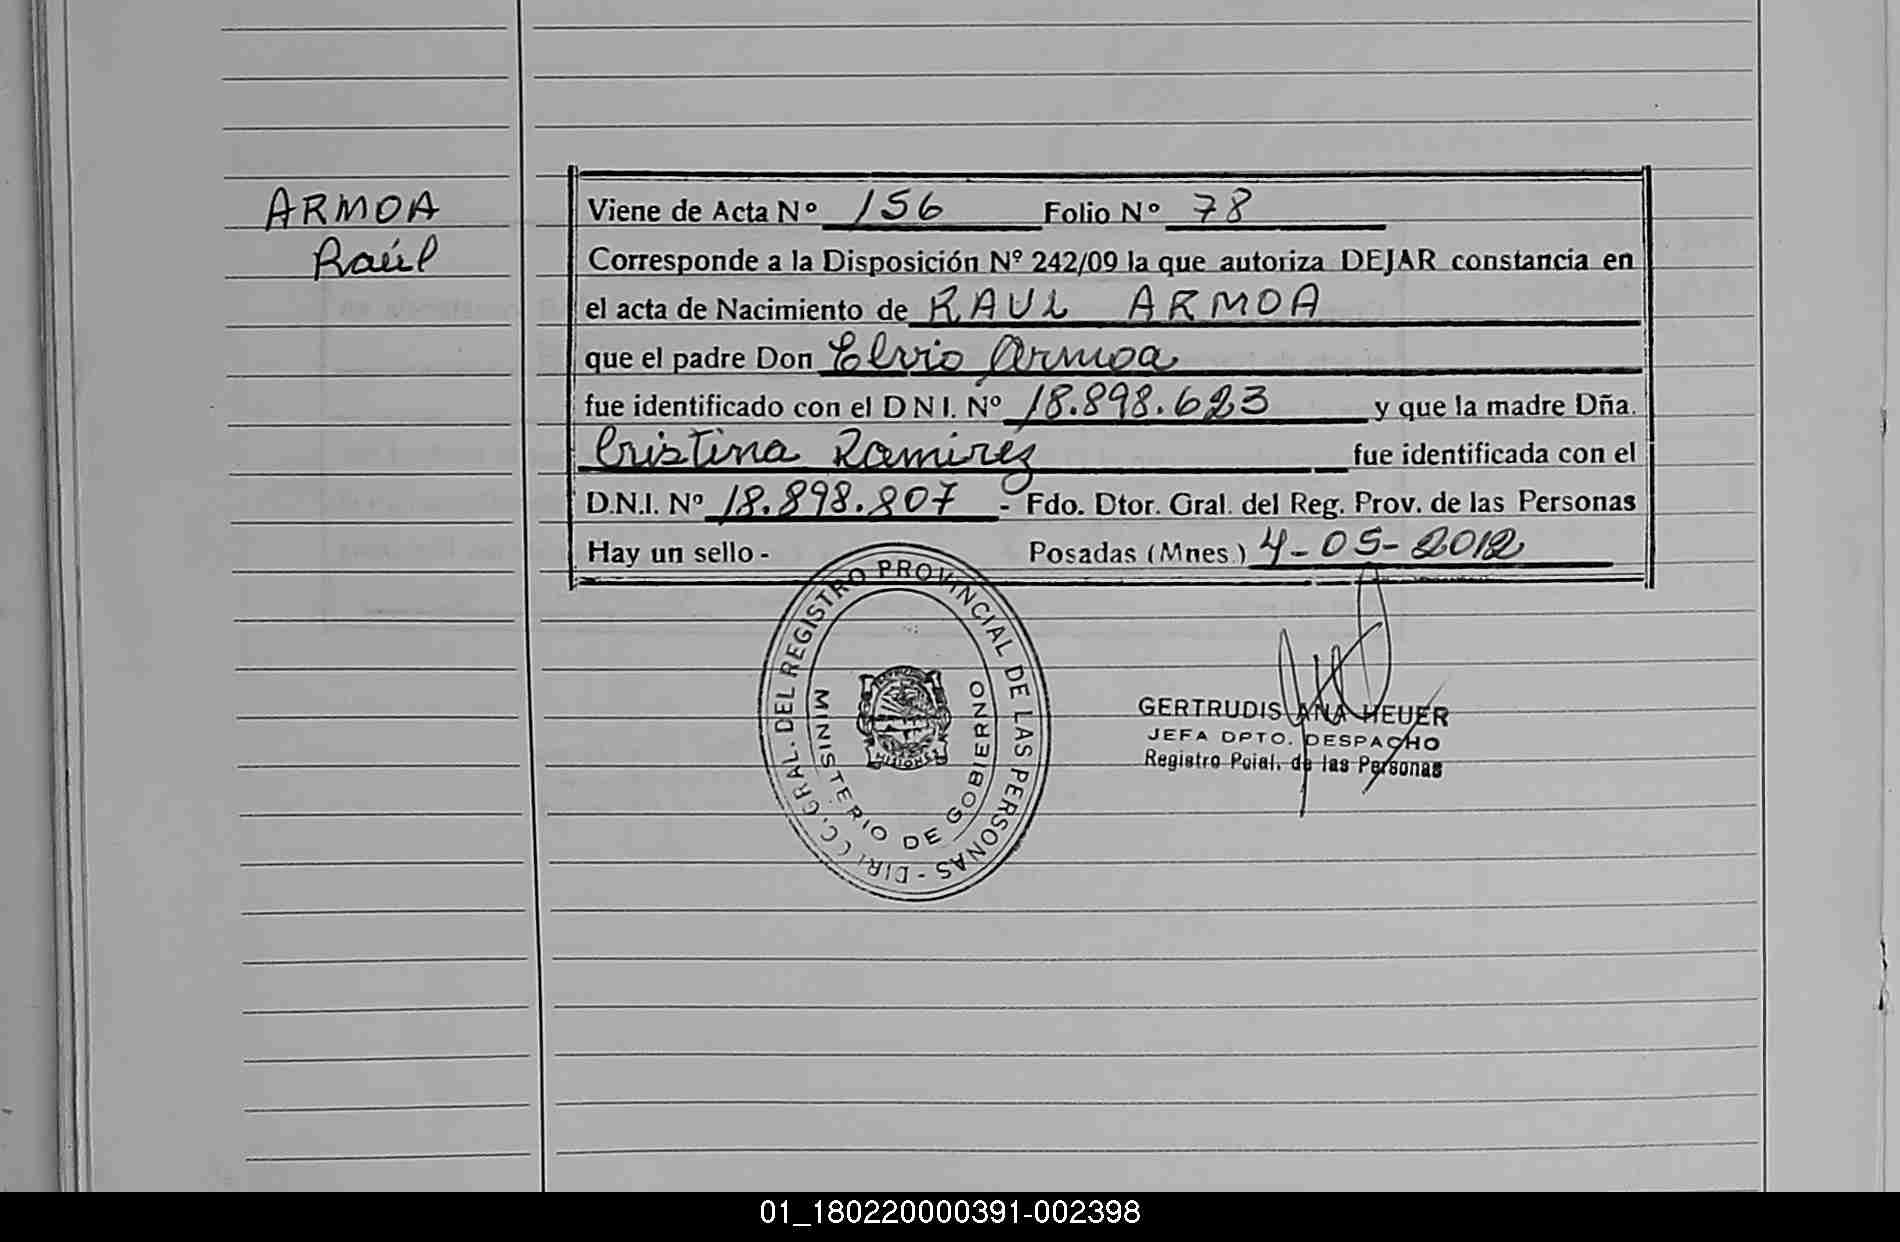 ARMOA
Raúl
Viene de Acta Nº 156 Folio Nº 78
Corresponde a la Disposición Nº 242/09 la que autoriza DEJAR constancia en
el acta de Nacimiento de RAUL ARMOA
que el padre Don Elvio Armoa
fue identificado con el D N I. Nº 18.898.623 y que la madre Dña.
Cristina Ramirez fue identificada con el
D.N.I. Nº 18.898.807 - Fdo. Dtor. Gral. del Reg. Prov. de las Personas
Hay un sello - Posadas (Mnes.) 4-05-2012
GRAL. DEL REGISTRO PROVINCIAL DE LAS PERSONAS -
MINISTERIO DE GOBIERNO
MISIONES
GERTRUDIS ANA HEUER
JEFA DPTO. DESPACHO
Registro Pcial. de las Personas
01_180220000391-002398